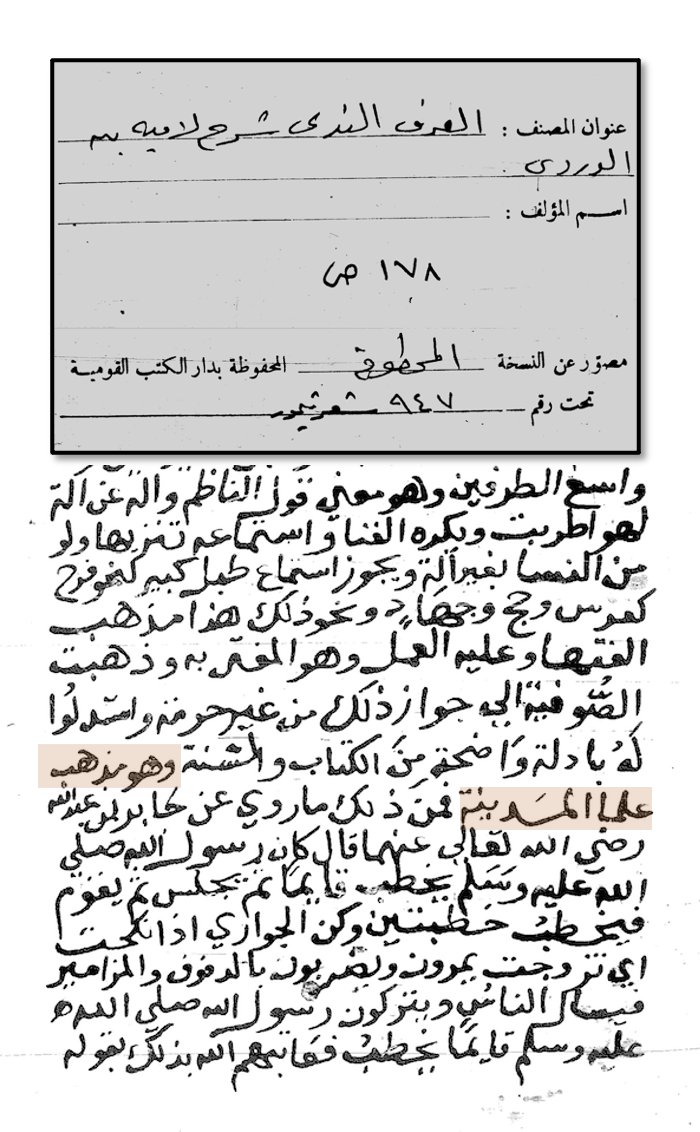 عنوان المصنف : العرف الندى شرح لامية بن
الوردى
اسم المؤلف :
١٧٨ ص
مصور عن النسخة المخطوطة المحفوظة بدار الكتب القومية
تحت رقم ٩٤٧ شعر تيمور
واسع الطرفين وهو معني قول الناظم واله عن الة
لهو اطربت ويكره الغنا واستماعه تنزيها ولو
من النسا بغير آلة ويجوز استماع طبل كبير كنحو فرح
كعرس وحج وجهاد ونحو ذلك هذا مذهب
الفقها وعليه العمل وهو المفتى به وذهبت
الصُّوفية الي جواز ذلك من غير حرمة واستدلوا
لهُ بادلة واضحة من الكتاب والسُّنة وهو مذهب
علما المدينة فمن ذلك ما روي عن جابر بن عبد الله
رضي الله تعالى عنهما قال كان رسول الله صلي
الله عليه وسَلم يخطب قايمًا ثم يجلس ثم يقوم
فيخطبُ خطبتين وكن الجواري اذا نكحت
اي تزوجت يمرون ويضربون بالدفوف والمزامير
فيسال الناس ويتركون رسول الله صلي الله
عليه وسلم قايمًا يخطبُ فعاتبهم الله بذلك بقوله